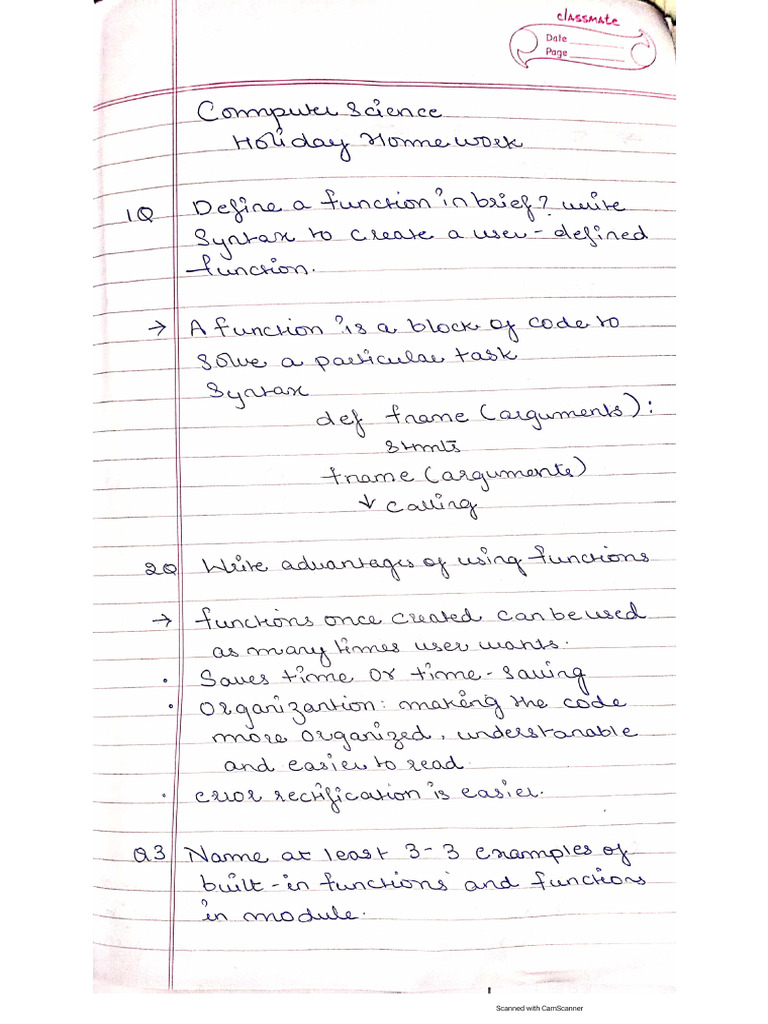 classmate
Date
Page
Computer Science
Holiday Homework
1Q Define a function in brief? write
syntax to create a user-defined
function.
→ A function is a block of code to
solve a particular task
Syntax
def fname (arguments):
stmts
fname (arguments)
↓ calling
2Q Write advantages of using functions
→ functions once created can be used
as many times user wants.
• Saves time or time-saving
• Organizantion: making the code
more organized, understanable
and easier to read.
• error rectification is easier.
Q3 Name at least 3-3 examples of
built-in functions and functions
in module.
Scanned with CamScanner